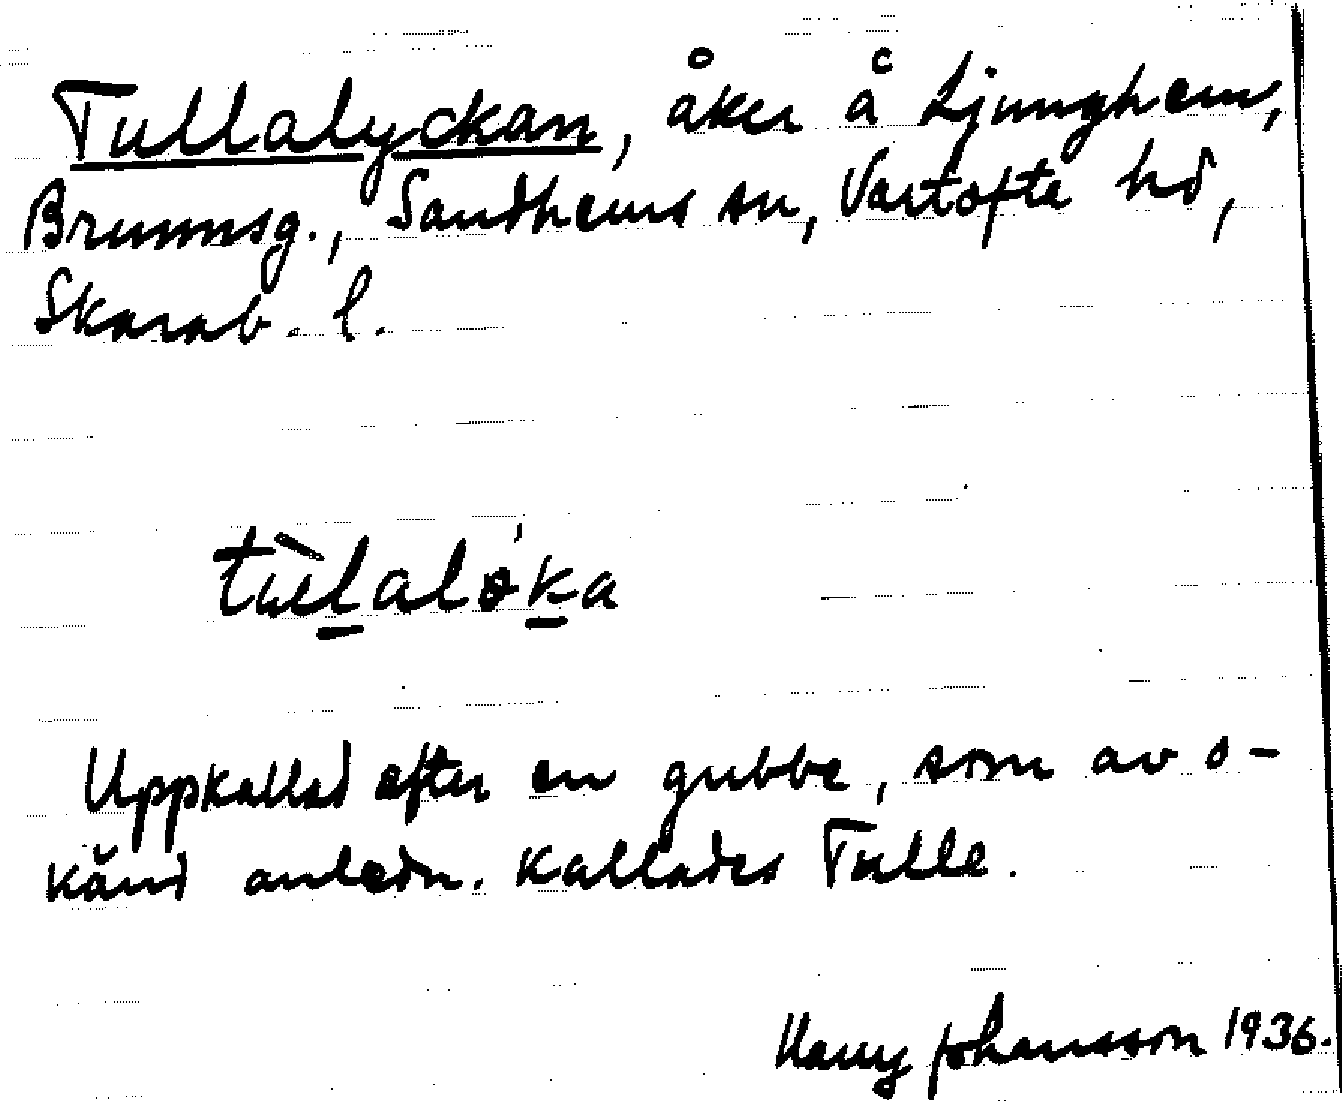 Tullalyckan, åker å Ljunghem,
Brunnsg., Sandhems sn, Vartofte hd,
Skarab. l.
tùl̠alø̍k̠a
Uppkallad efter en gubbe, som av o-
känd anledn. kallades Tulle.
Harry Johansson 1936.